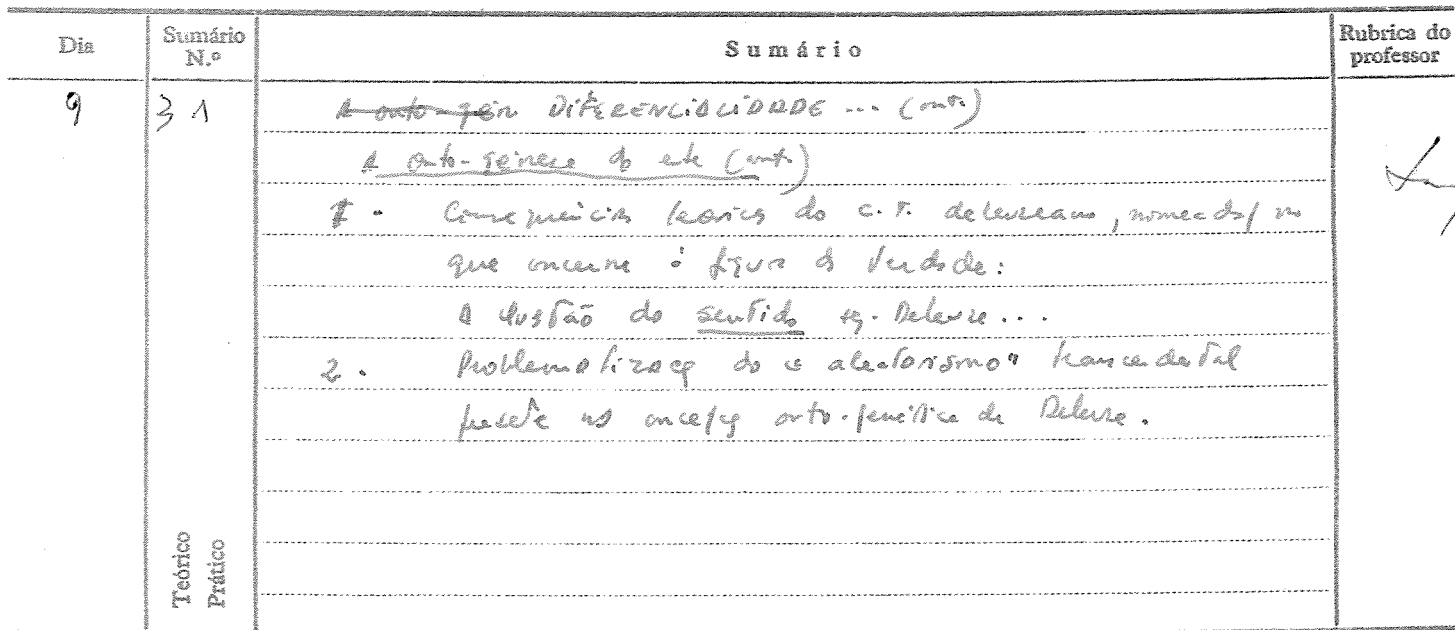 Dia Sumário N.º Sumário Rubrica do professor
9 31 A onto-gén DIFERENCIALIDADE ... (cont.)
A onto-génese do ente (cont.)
1. Consequências teóricas do c. T. deleuzeano, nomeada/ no
que concerne à figura da Verdade:
A questão do sentido sg. Deleuze...
2. Problematizaçq do « aleatorismo" transcendental
presente na concepçq onto-genética de Deleuze.
Teórico
Prático